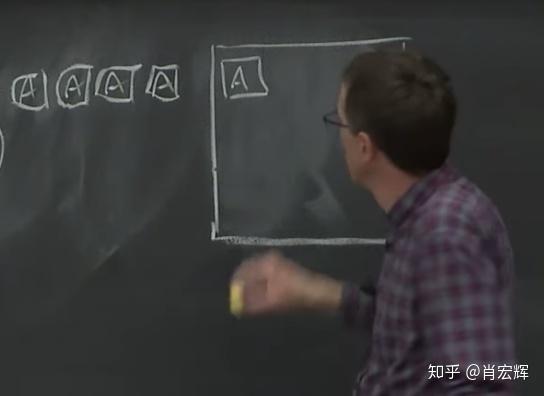 A A A A A
知乎 @肖宏辉